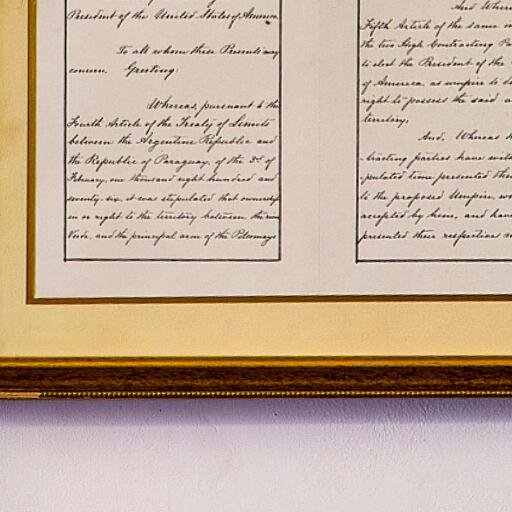 President of the United States of America.
To all whom these Presents may
concern. Greeting:
Whereas, pursuant to the
Fourth Article of the Treaty of Limits
between the Argentine Republic and
the Republic of Paraguay, of the 3rd of
February, one thousand eight hundred and
seventy-six, it was stipulated that ownership
in or right to the territory between the river
Verde, and the principal arm of the Pilcomayo
And Where
Fifth Article of the same
the two High Contracting Pa
to elect the President of the
of America, as umpire to de
right to possess the said
territory;
And, Whereas
-tracting parties have
-pulated time presented the
to the proposed Umpire,
accepted by him, and have
presented their respective